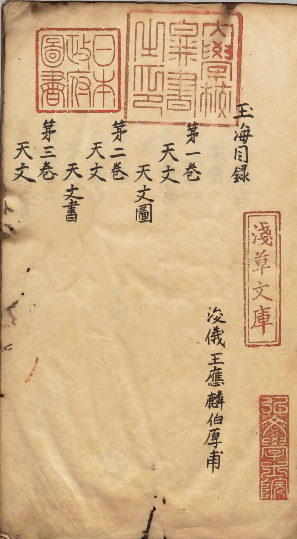 玉海目録
浚儀王應麟伯厚甫
第一卷
天文
天文圖
第二卷
天文
天文書
第三卷
天文
大學校
藏書
之印
日本
政府
圖書
淺草文庫
弘文學士院